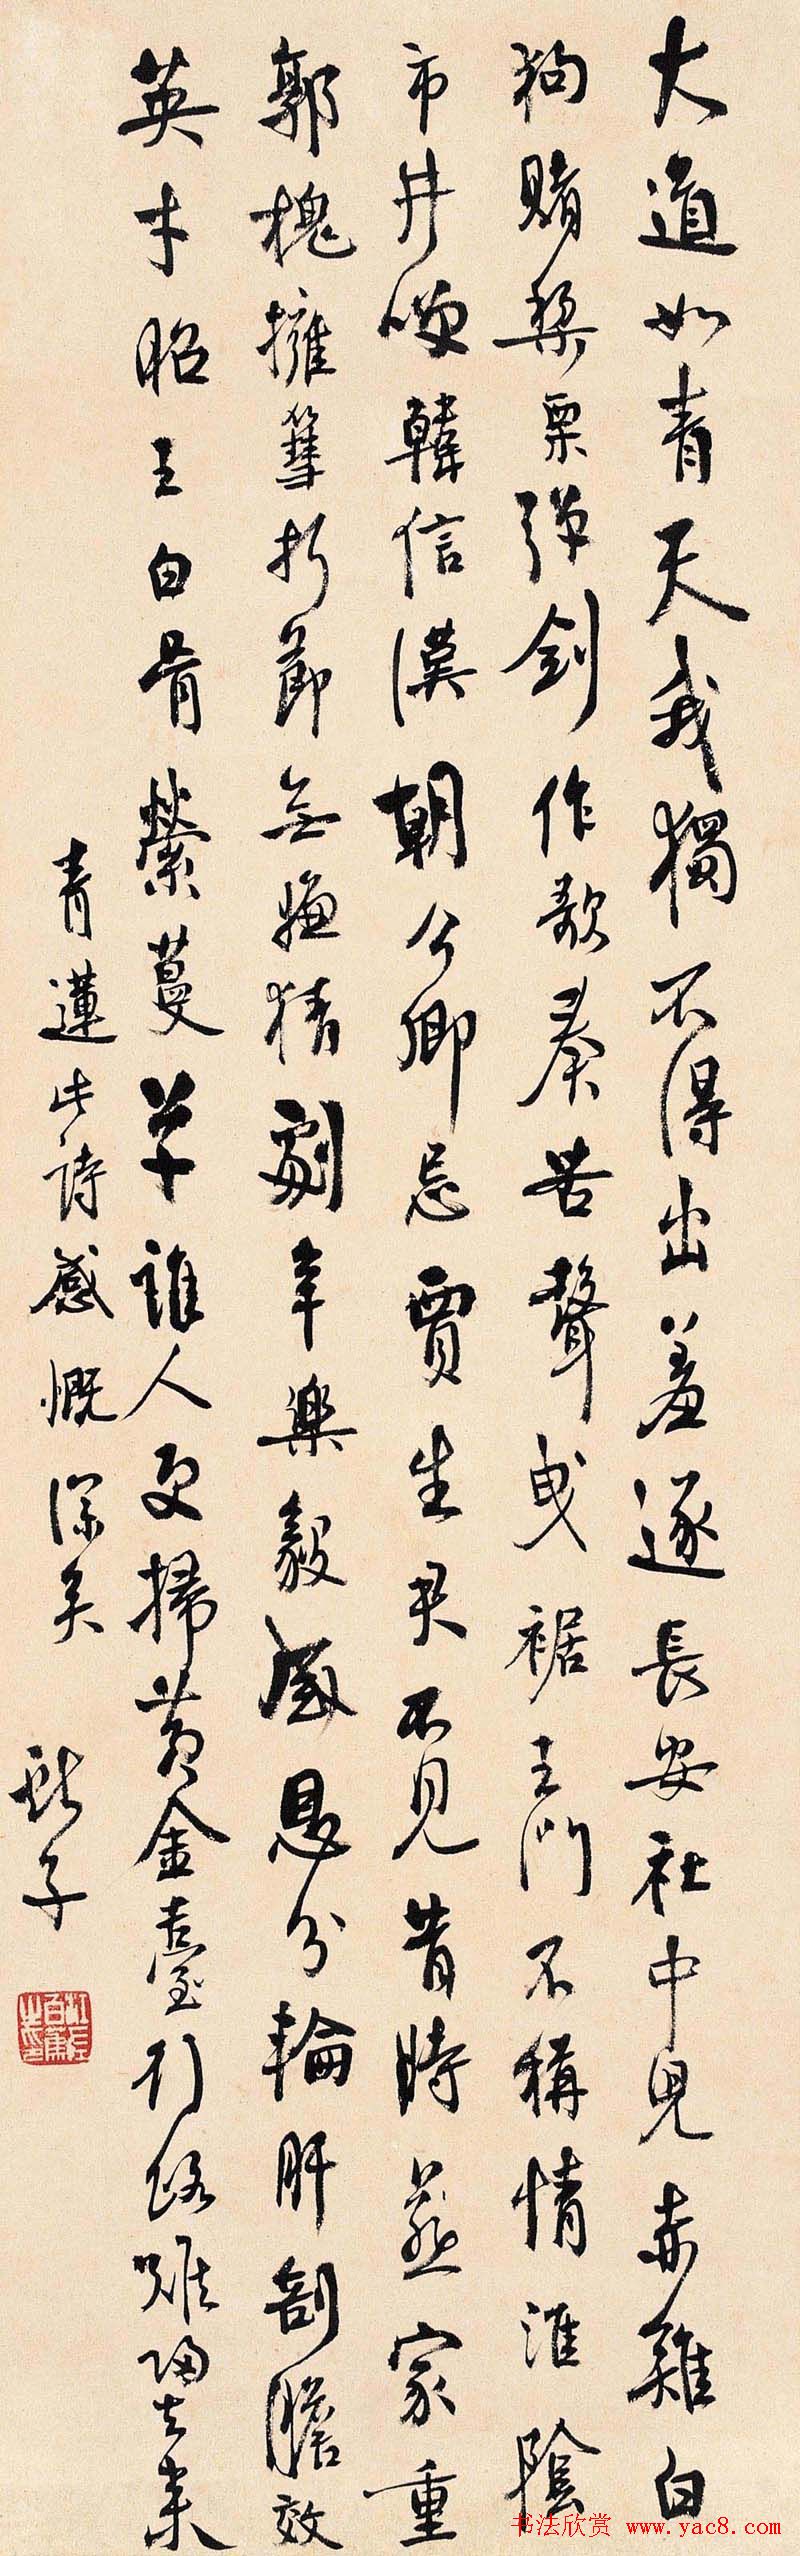 大道如青天我獨不得出羞逐長安社中兒赤雞白
狗賭棃栗彈劍作歌奏苦聲曳裾王門不稱情淮陰
市井咲韓信漢朝公卿忌賈生君不見昔時燕家重
郭槐擁篲折節無嫌猜劇辛樂毅感恩分輪肝剖膽效
英才昭王白骨縈蔓草誰人更掃黃金臺行路難歸去來
青蓮此詩感慨深矣
書法欣赏 www.yac8.com